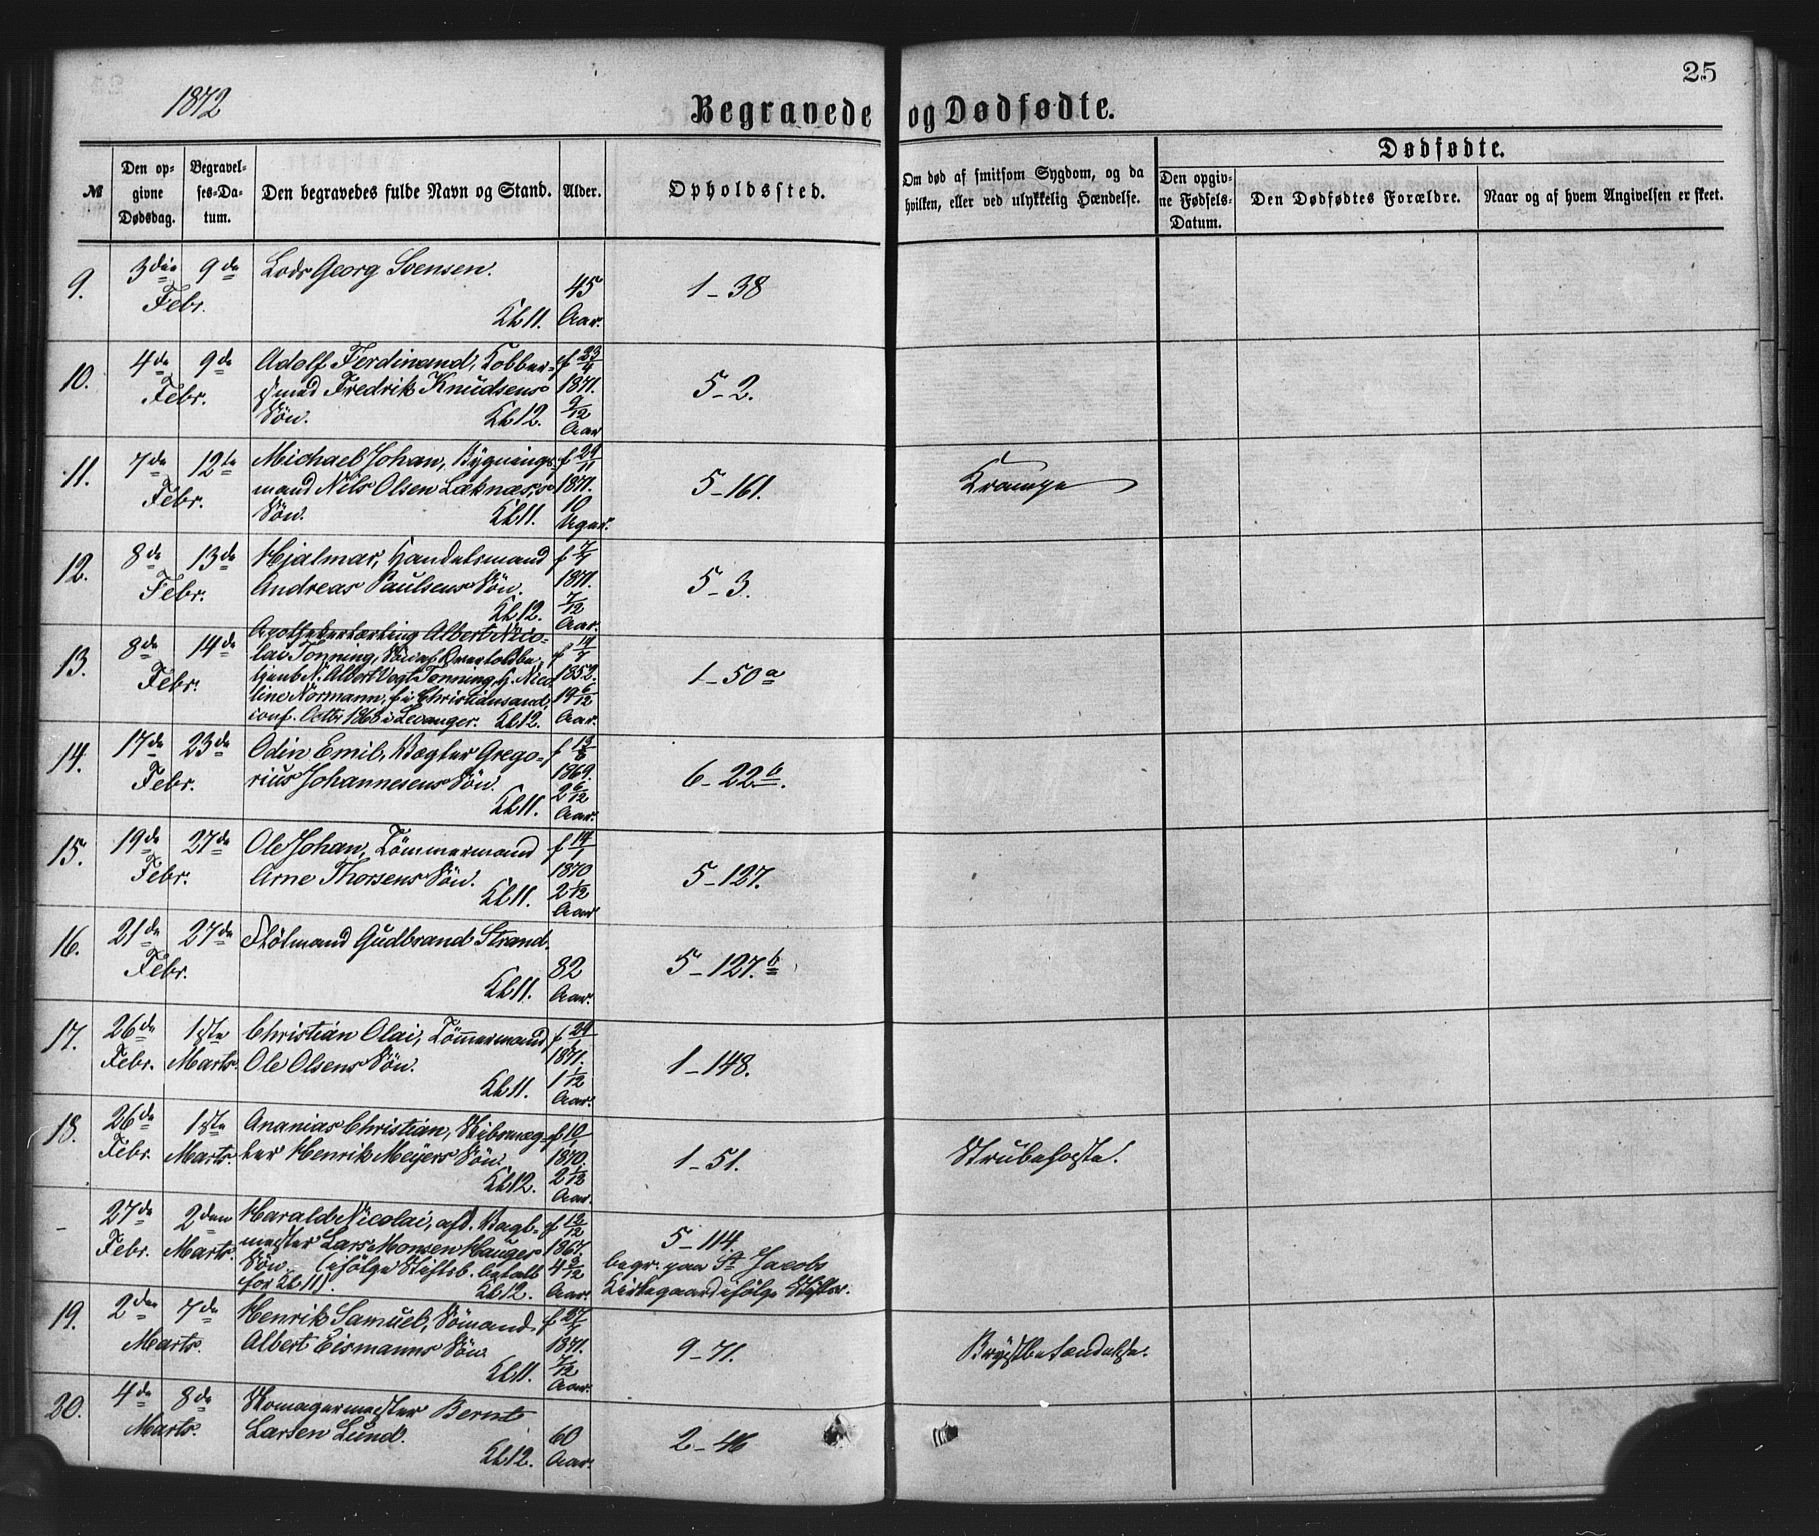 25
1872
Begravede og Dødfødte.
№
Den op-
givne
Dødsdag.
Begravel-
ses-Da-
tum.
Den begravedes fulde Navn og Stand.
Alder.
Opholdssted.
Om død af smitsom Sygdom, og da
hvilken, eller ved ulykkelig Hændelse.
Dødfødte.
Den opgiv-
ne Fødsels-
Datum.
Den Dødfødtes Forældre.
Naar og af hvem Angivelsen er skeet.
9. 3die Febr. 9de Lods Georg Svensen.
Kl 11. 45 Aar. 1-38
10. 4de Febr. 9de Adolf Ferdinand, Kobber-
smed Fredrik Knudsens
Søn. Kl 12. f 23/4 1871. 9/12 Aar 5-2.
11. 7de Febr. 12te Michael Johan, Bygnings-
mand Nils Olsen Læknæs,s
Søn. Kl 11. f 29/11 1871. 10 Uger. 5-161. Krampe
12. 8de Febr. 13de Hjalmar, Handelsmand
Andreas Paulsens Søn.
Kl 12. 1871. 7/12 Aar. 5-3.
13. 8de Febr. 14de Apothekerlærling Albert Nico-
lai Tønning, Søn af
N. Albert Vogt Tønning, H. Nico-
line Normann, f. i Christiansand,
conf. Octbr 1868 i Levanger. Kl 12. f 14/7 1852. 19 6/12 Aar. 1-50 a
14. 17de Febr. 23de Odin Emil, Vægter Grego-
rius Johannesens Søn.
Kl 11. f 13/8 1869. 2 6/12 Aar. 6-22 b.
15. 19de Febr. 27de Ole Johan, Tømmermand
Arne Thorsens Søn.
Kl 11. f 14/1 1870 2 1/12 Aar 5-127.
16. 21de Febr. 27de Flötmand Gudbrand Strand.
Kl 11. 82 Aar. 5-127. b
17. 26de Febr. 1ste Marts. Christian Olai, Tömmermand
Ole Olsens Søn.
Kl 11. f 29/1 1871. 1 1/12 Aar. 1-148.
18. 26de Febr. 1ste Marts. Ananias Christian, Skibsmæg-
ler Henrik Meyers Søn.
Kl 12. f 10/1 1870. 2 1/12 Aar. 1-51. Strubehoste.
- 27de Febr. 2den Marts. Harald Nicolai, afd. Bagt-
mester Lars Monsen Hauges
Søn. (ifølge Stiftsb. betalt
for Kl 11). Kl 12. f 12/12 1867. 4 2/12 Aar. 5-114.
begr. paa St Jacobs
Kirkegaard ifølge Stiftsr.
19. 2den Marts. 7de Henrik Samuel, Sømand
Albert Eismanns Søn.
Kl 11. 1871. 7/12 Aar. 9-71. Brystbetændelse.
20. 4de Marts. 8de Skomagermester Bernt
Larsen Lund.
Kl 12. 60 Aar. 2-46